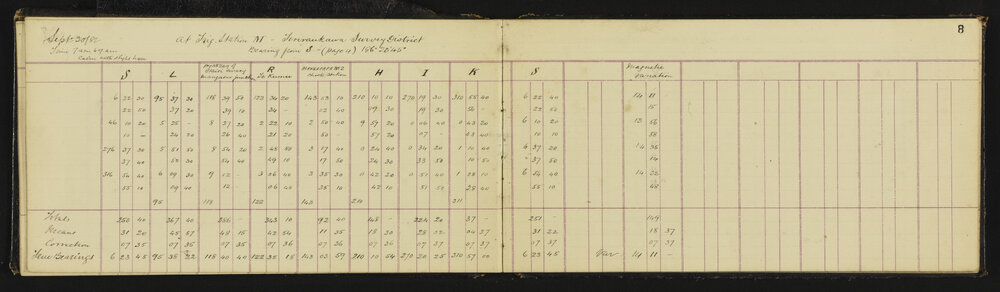 Sept 30/82 At Trig. Station M - Tourankawa Survey District 8
Time 7 am to 9 am Bearing from S - (page 4) 186° 20' 45"
Calm with slight haze
S L R H I K S Magnetic Variation
6 22 30 95 37 30 118 39 50 122 34 20 143 03 10 210 10 10 270 19 30 310 55 40 6 22 40 14 11
22 50 37 20 39 10 34 - 02 40 09 30 19 30 56 - 22 50 15
46 10 20 5 25 - 8 27 20 2 22 10 2 50 40 9 59 20 0 06 40 0 43 20 6 10 20 12 56
10 - 24 20 26 40 21 20 50 - 57 20 07 - 43 40 10 10 58
276 37 30 5 51 50 8 54 20 2 48 50 3 17 40 0 24 40 0 34 20 1 10 40 6 37 20 14 36
37 40 50 30 54 40 49 10 17 50 24 30 33 50 10 50 37 50 14
316 54 40 6 09 30 9 12 - 3 06 40 3 35 30 0 42 20 0 51 40 1 28 10 6 54 40 14 32
55 10 09 40 12 - 06 40 35 10 42 10 51 50 28 40 55 10 48
95 118 122 143 210 311
Totals 250 40 367 40 386 - 343 10 92 40 148 - 224 20 37 - 251 - 149
Means 31 20 45 57 48 15 42 54 11 35 18 30 28 02 04 37 31 22 18 37
Correction 07 35 07 35 07 35 07 36 07 36 07 36 07 37 07 37 07 37 07 37
True Bearings 6 23 45 95 38 22 118 40 40 122 35 18 143 03 59 210 10 54 270 20 25 310 57 00 6 23 45 Var 14 11 -